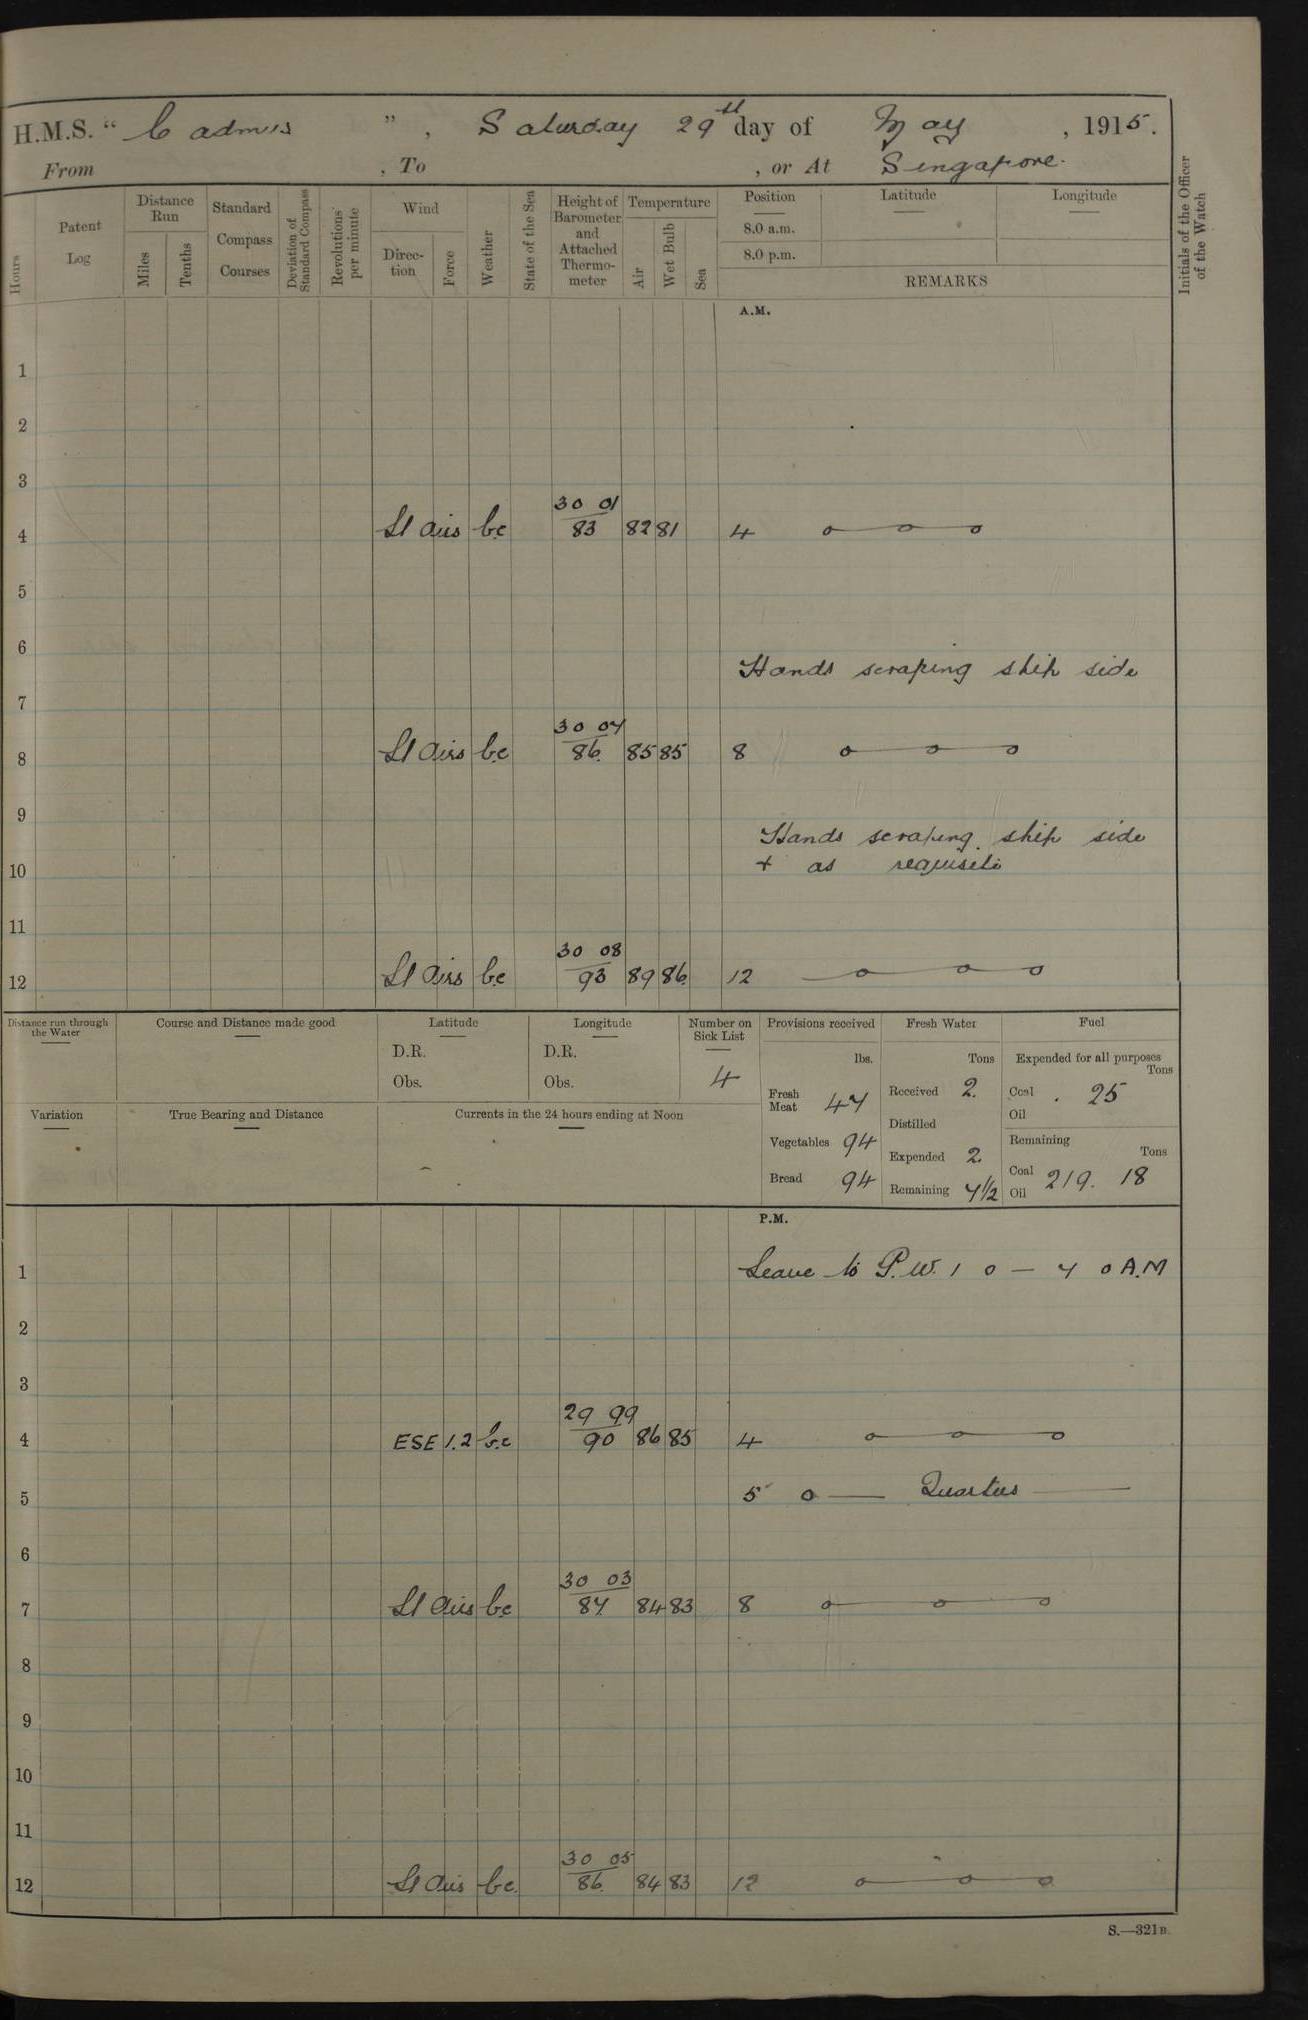 H.M.S. “ Cadmus ” , Saturday 29th day of May , 1915.
From , To , or At Singapore.
Hours
Patent Log
Distance Run
Miles
Tenths
Standard Compass Courses
Deviation of Standard Compass
Revolutions per minute
Wind
Direction
Force
Weather
State of the Sea
Height of Barometer and Attached Thermometer
Temperature
Air
Wet Bulb
Sea
Position
8.0 a.m.
8.0 p.m.
Latitude
Longitude
REMARKS
Initials of the Officer of the Watch
A.M.
1
2
3
30 01
4 Lt airs bc 83 82 81 4
5
6
Hands scraping ship side
7
30 07
8 Lt airs bc 86 85 85 8
9
Hands scraping ship side
10 + as requisite
11
30 08
12 Lt airs bc 93 89 86 12
Distance run through the Water
Course and Distance made good
Latitude
D.R.
Obs.
Longitude
D.R.
Obs.
Number on Sick List
4
Provisions received
lbs.
Fresh Meat 47
Vegetables 94
Bread 94
Fresh Water
Tons
Received 2
Distilled
Expended 2
Remaining 7½
Fuel
Expended for all purposes
Tons
Coal . 25
Oil
Remaining
Tons
Coal 219. 18
Oil
Variation
True Bearing and Distance
Currents in the 24 hours ending at Noon
P.M.
1 Leave to P.W. 1 0 — 7 0 A.M
2
3
29 99
4 ESE 1.2 bc 90 86 85 4
5 5 0 — Quarters —
6
30 03
7 Lt airs bc 87 84 83 8
8
9
10
11
30 05
12 Lt airs bc 86 84 83 12
S.—321B.